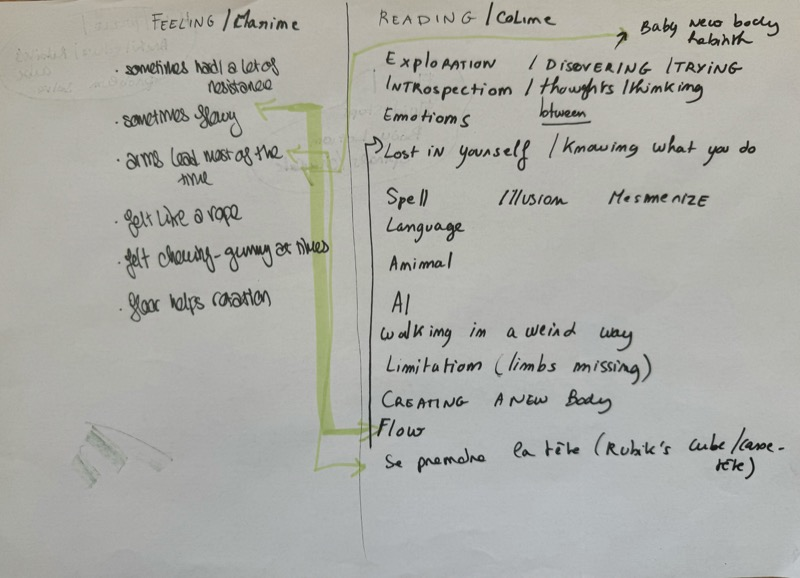 FEELING /
· sometimes hard / a lot of
resistance
· sometimes flowy
· arms lead most of the
time
· felt like a rope
· felt chewing-gummy at times
· floor helps rotation
READING / Coline
Baby new body
rebirth
EXPLORATION / DISOVERING / TRYING
INTROSPECTION / thoughts / thinking
Emotions between
Lost in yourself / Knowing what you do
Spell Illusion MESMERIZE
Language
Animal
AI
Walking in a weird way
Limitation (limbs missing)
CREATING A NEW BODY
Flow
Se prendre la tête (RUBIK'S cube / casse-
tête)